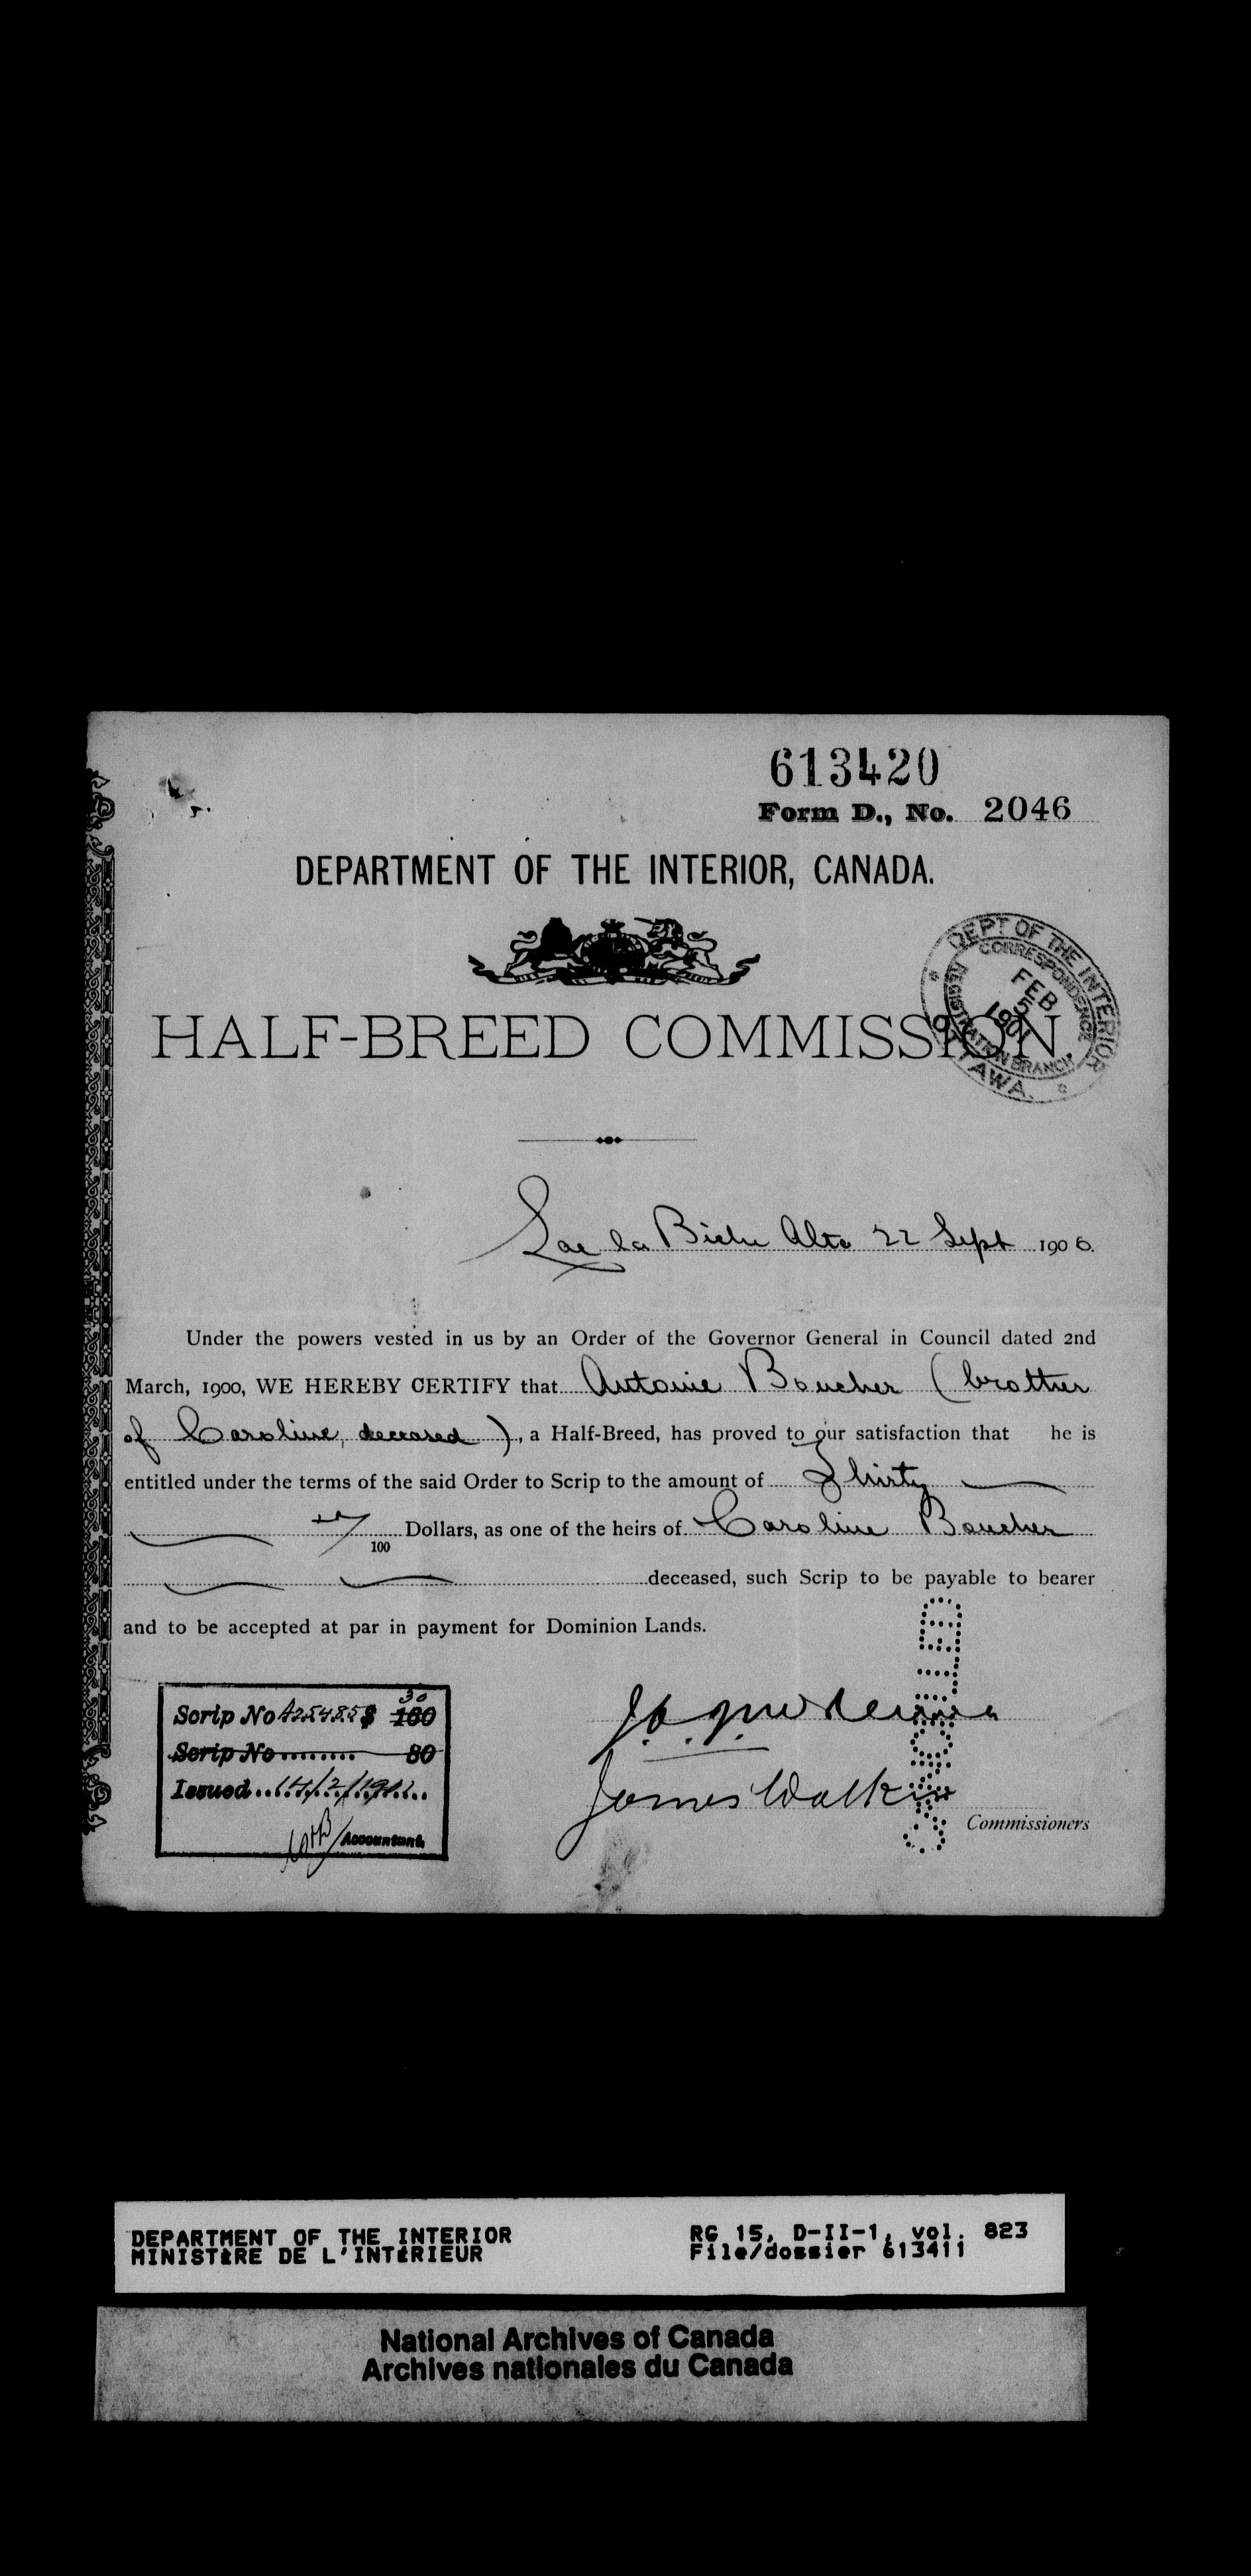 613420
Form D., No. 2046
DEPARTMENT OF THE INTERIOR, CANADA.
DEPT OF THE INTERIOR
CORRESPONDENCE
REGISTRATION BRANCH
FEB
5
1901
OTTAWA.
HALF-BREED COMMISSION
Lac la Biche Alta 22 Sept 1900.
Under the powers vested in us by an Order of the Governor General in Council dated 2nd
March, 1900, WE HEREBY CERTIFY that Antoine Boucher (brother
of Caroline, deceased), a Half-Breed, has proved to our satisfaction that he is
entitled under the terms of the said Order to Scrip to the amount of Thirty
100 Dollars, as one of the heirs of Caroline Boucher
deceased, such Scrip to be payable to bearer
and to be accepted at par in payment for Dominion Lands.
Scrip No A25485 $ 160 30
Scrip No ........ 80
Issued .. 14/2/1901..
Accountant
James Walker
Commissioners
DEPARTMENT OF THE INTERIOR
MINISTÈRE DE L'INTÉRIEUR
RG 15, D-II-1, vol. 823
File/dossier 613411
National Archives of Canada
Archives nationales du Canada